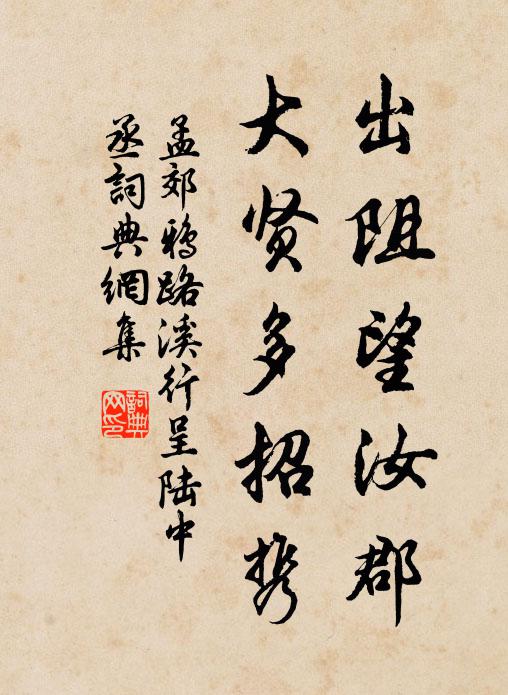 出阻望汝郡
大贤多招携
孟郊鸦路溪行呈陆中
丞词典網集
詞典
网印